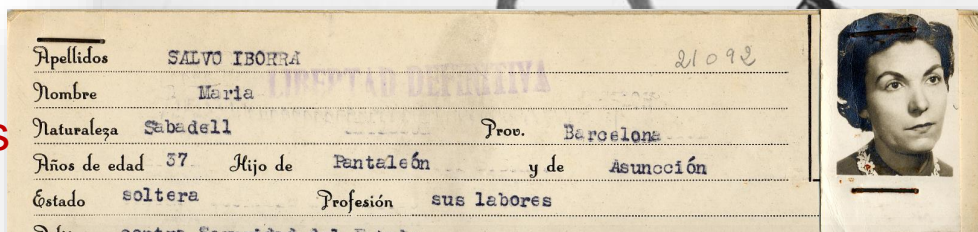 Apellidos SALVO IBORRA 21092
LIBERTAD DEFINITIVA
Nombre Maria
s
Naturaleza Sabadell Prov. Barcelona
Años de edad 37 Hijo de Pantaleón y de Asuncción
Estado soltera Profesión sus labores
contra Seguridad del Estado